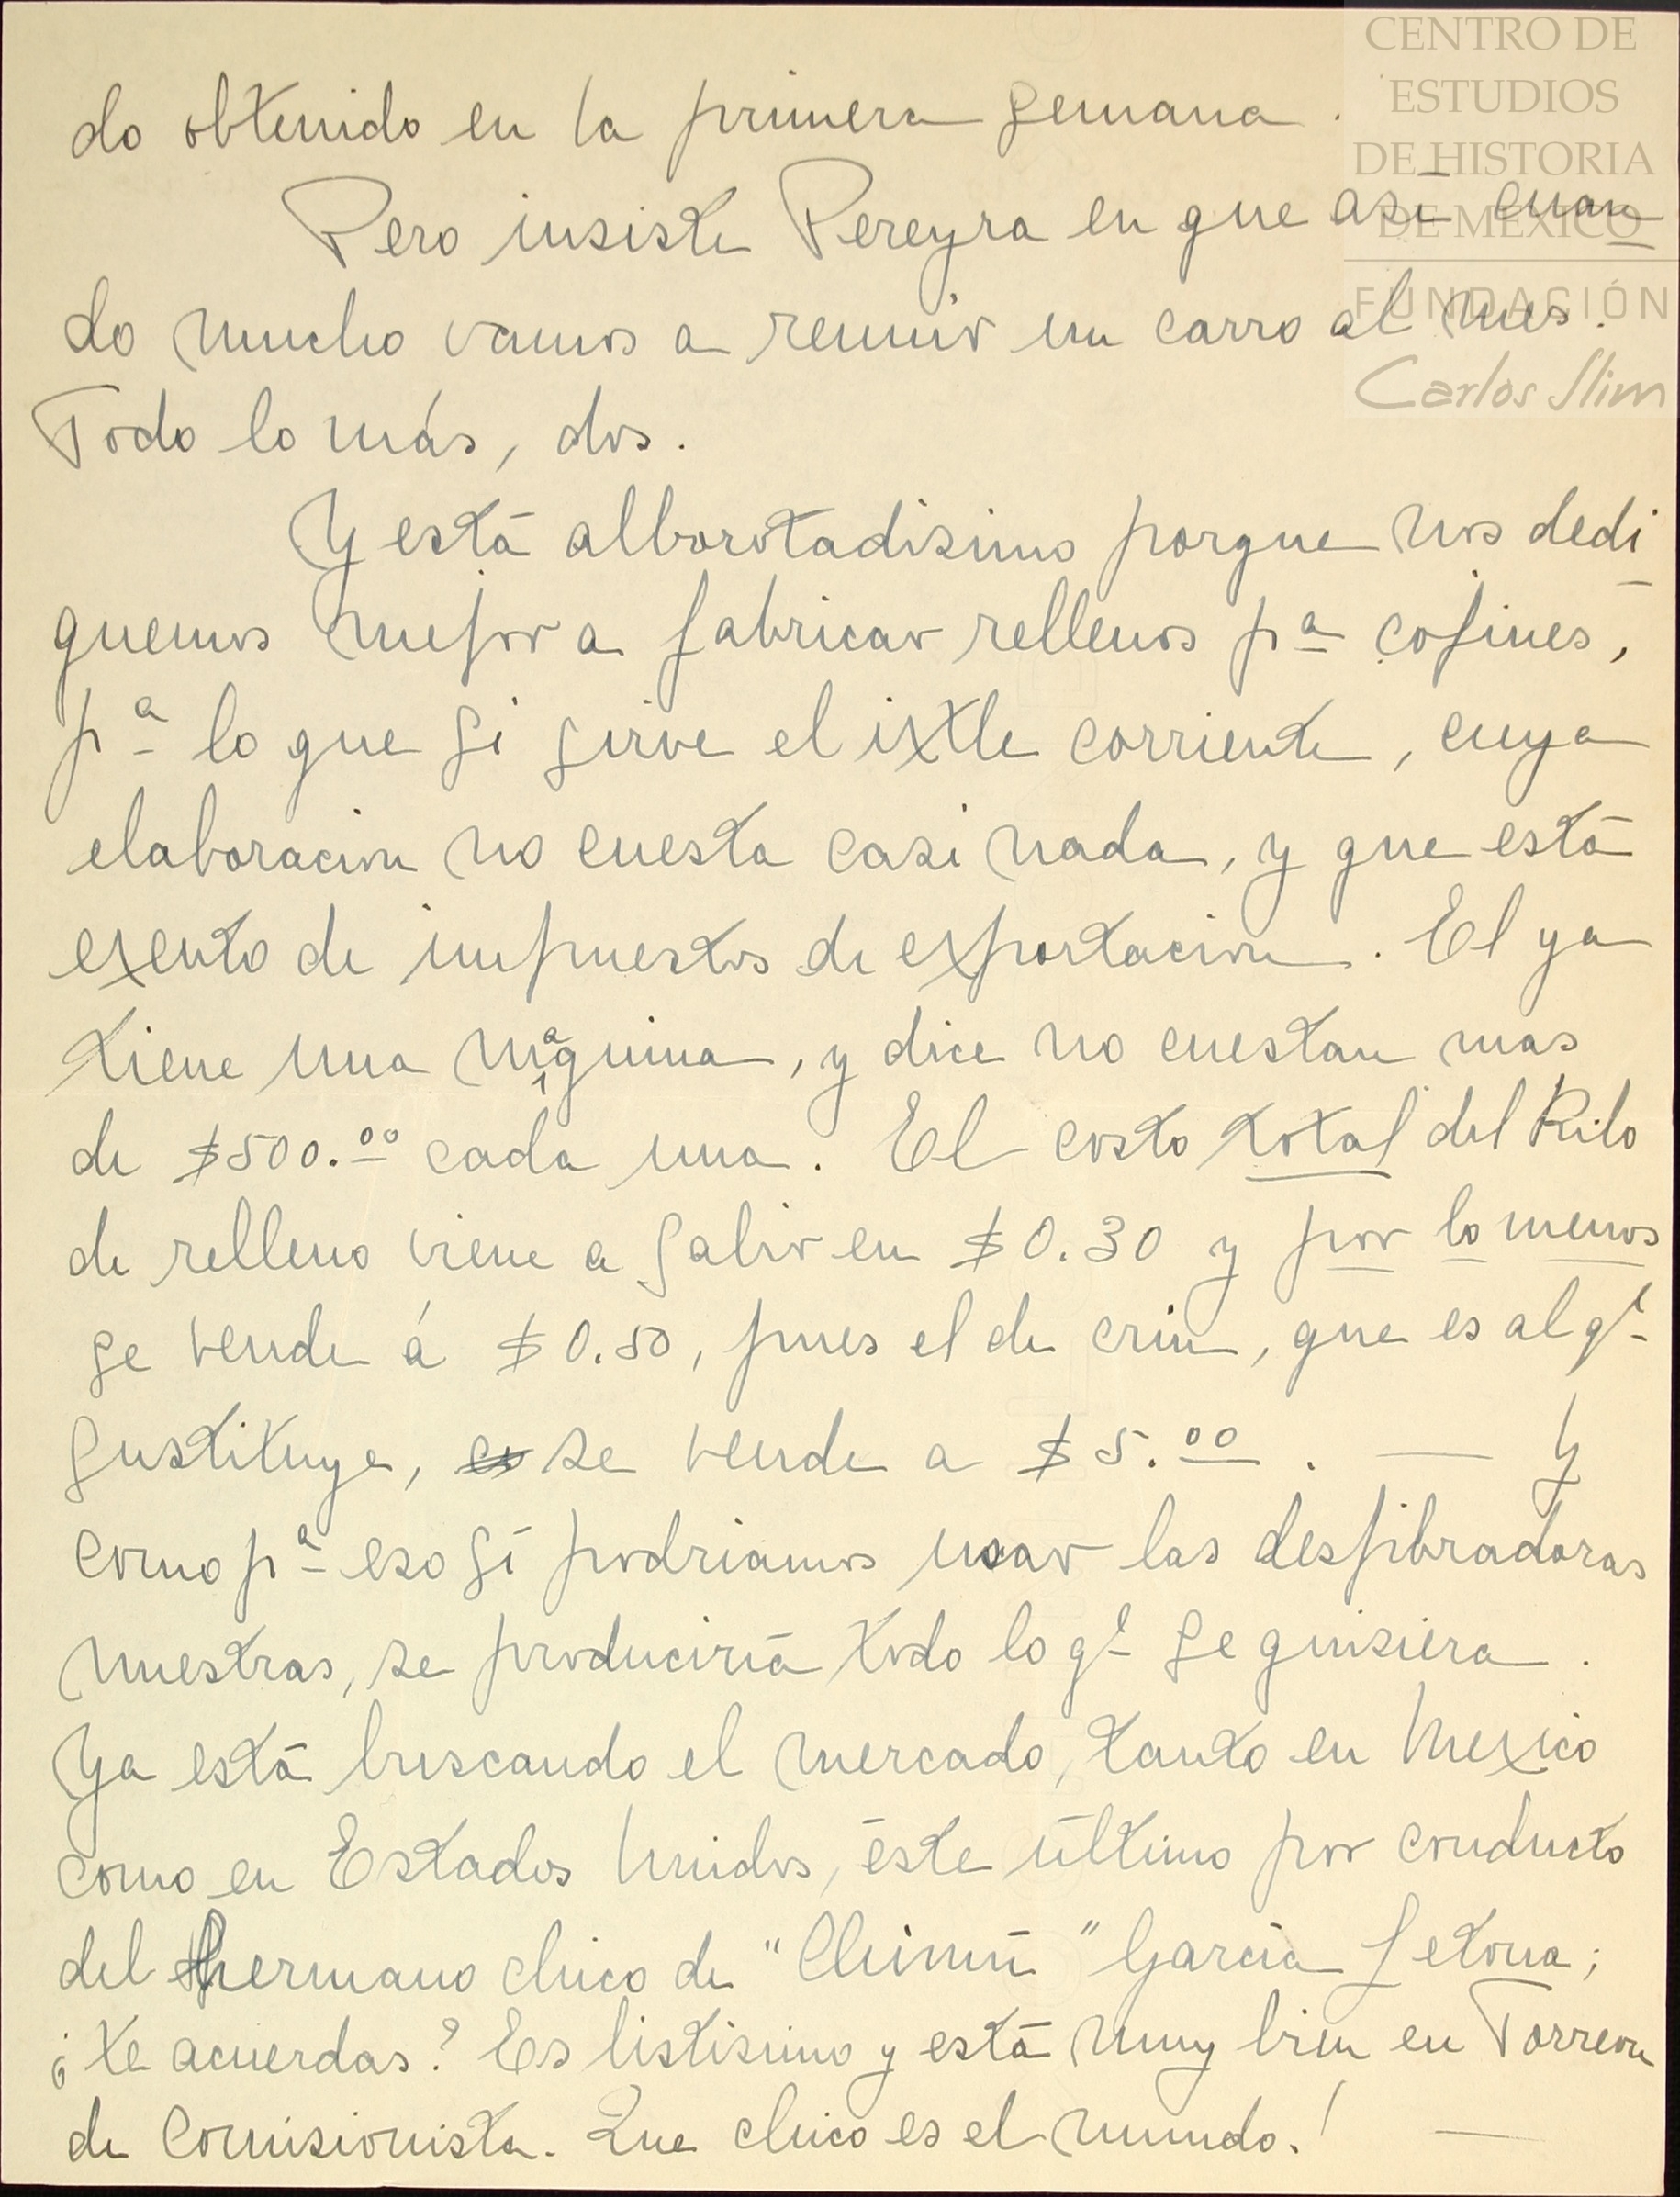 CENTRO DE
ESTUDIOS
DE HISTORIA
DE MEXICO
FUNDACIÓN
Carlos Slim
do obtenido en la primera semana.
Pero insiste Pereyra en que así cuan
do mucho vamos a reunir un carro al mes.
Todo lo más, dos.
Y está alborotadisimo porque nos dedi
quemos mejor a fabricar rellenos pª cojines,
pª lo que si sirve el ixtle corriente, cuya
elaboracion no cuesta casi nada, y que está
exento de impuestos de exportacion. El ya
tiene una maquina, y dice no cuestan mas
de $500.00 cada una. El costo total del Kilo
de relleno viene a salir en $0.30 y por lo menos
se vende á $0.50, pues el de crin, que es al qe
sustituye, es se vende a $5.00. — Y
como pª eso sí podriamos usar las desfibradoras
nuestras, se produciría todo lo qe se quisiera.
Ya está buscando el mercado, tanto en Mexico
como en Estados Unidos, éste último por conducto
del hermano chico de "Chimú" García Letona;
¿te acuerdas? Es listisimo y está muy bien en Torreon
de Comisionista. Que chico es el mundo.! —